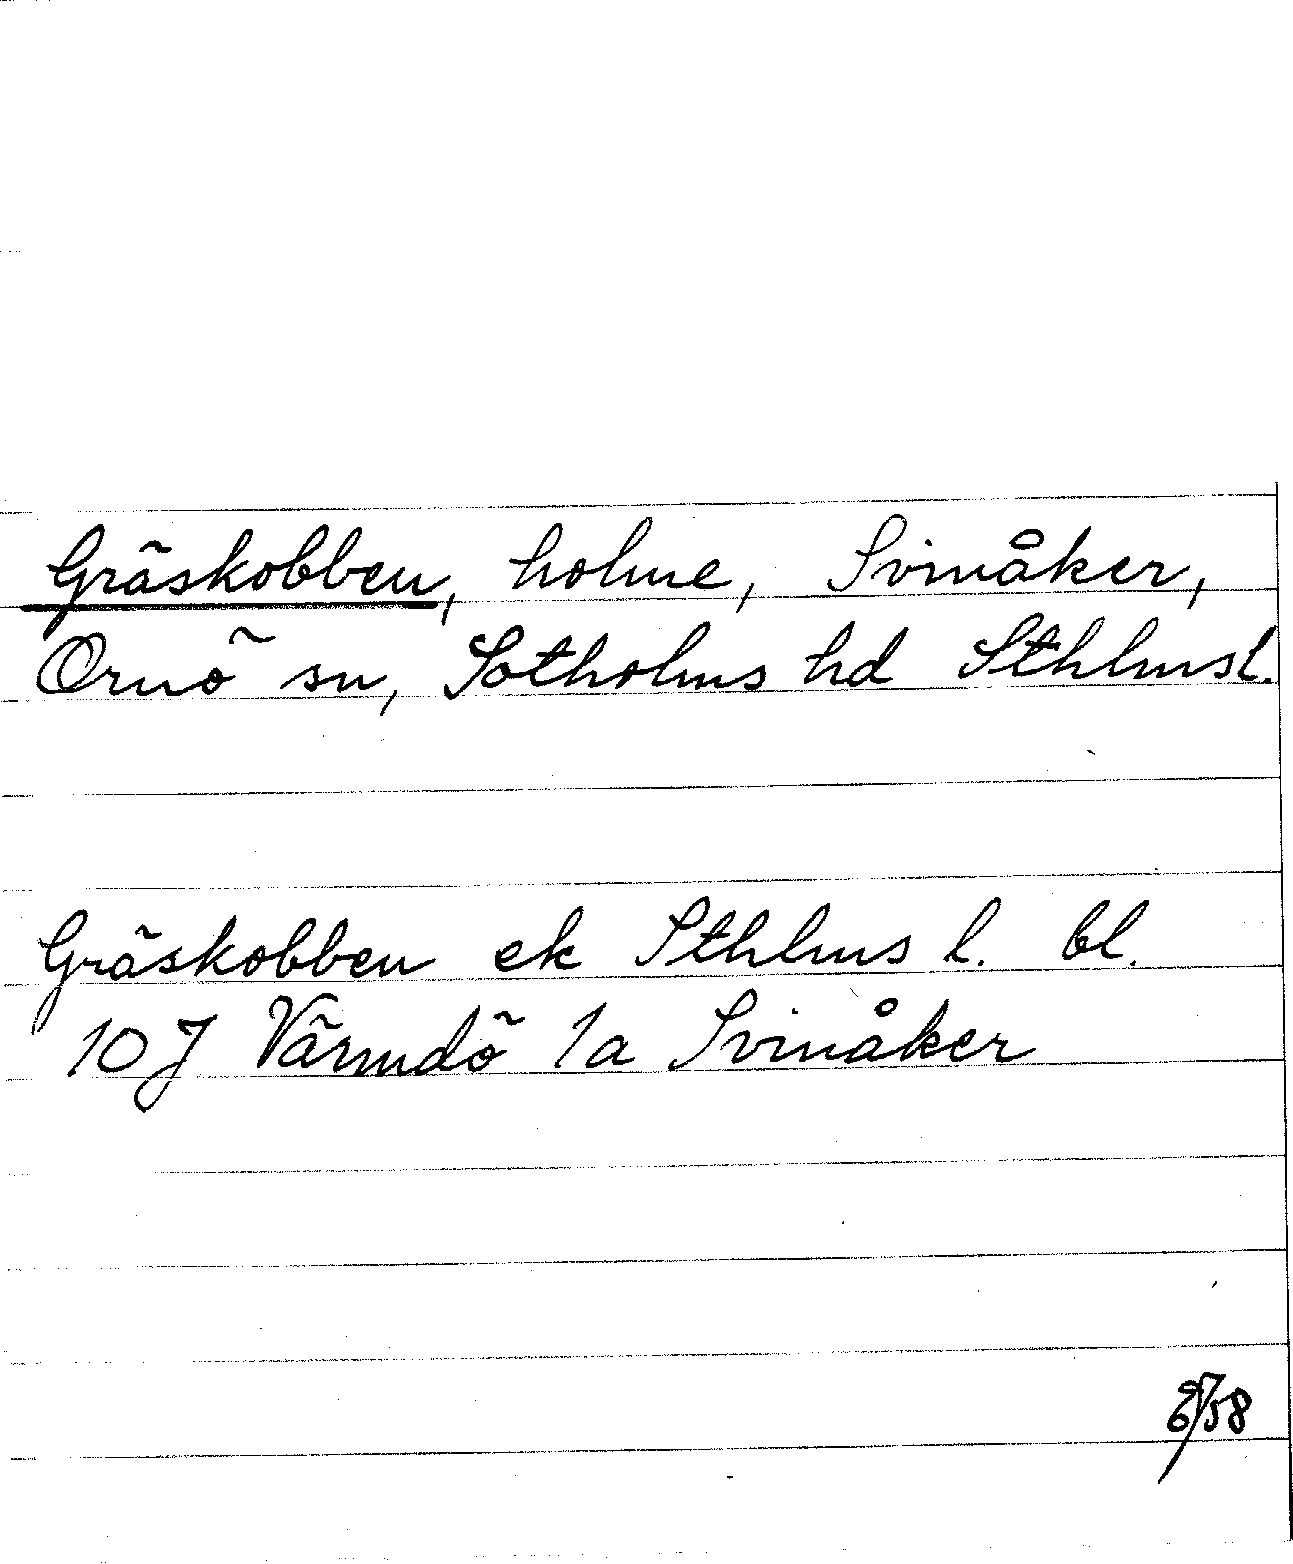 Gräskobben, holme, Svinåker,
Ornö sn, Sotholms hd Sthlmsl.
Gräskobben ek Sthlms l. bl.
10 J Värmdö 1a Svinåker